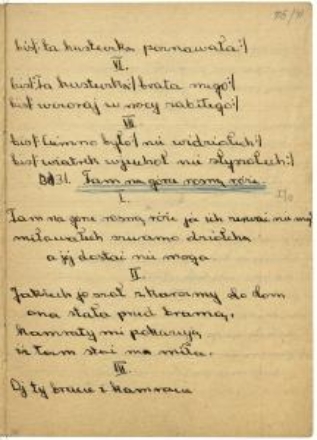 bis/: ta kusteczka poznawała:/
VI.
bis/: Ta kusteczka/ brata mego:/
bis/ wczoraj w nocy zabitego:/
VII
bis/: Ciemno było/ nie widziałach:/
bis/ wiatrek wjechoł nie słyszałach:/
31. Tam na górze rosną róże.
I.
Tam na górze rosną róże jo ich zerwać ni mogę
miłowałach szwarno dziołcha
a jej dostać ni mogę
II.
Jakżech jo szoł z karczmy do dom
ona stała przed bramą,
kamraty mi pokazują
że tam stoi ma miła.
III.
Oj ty bracie z kamracie